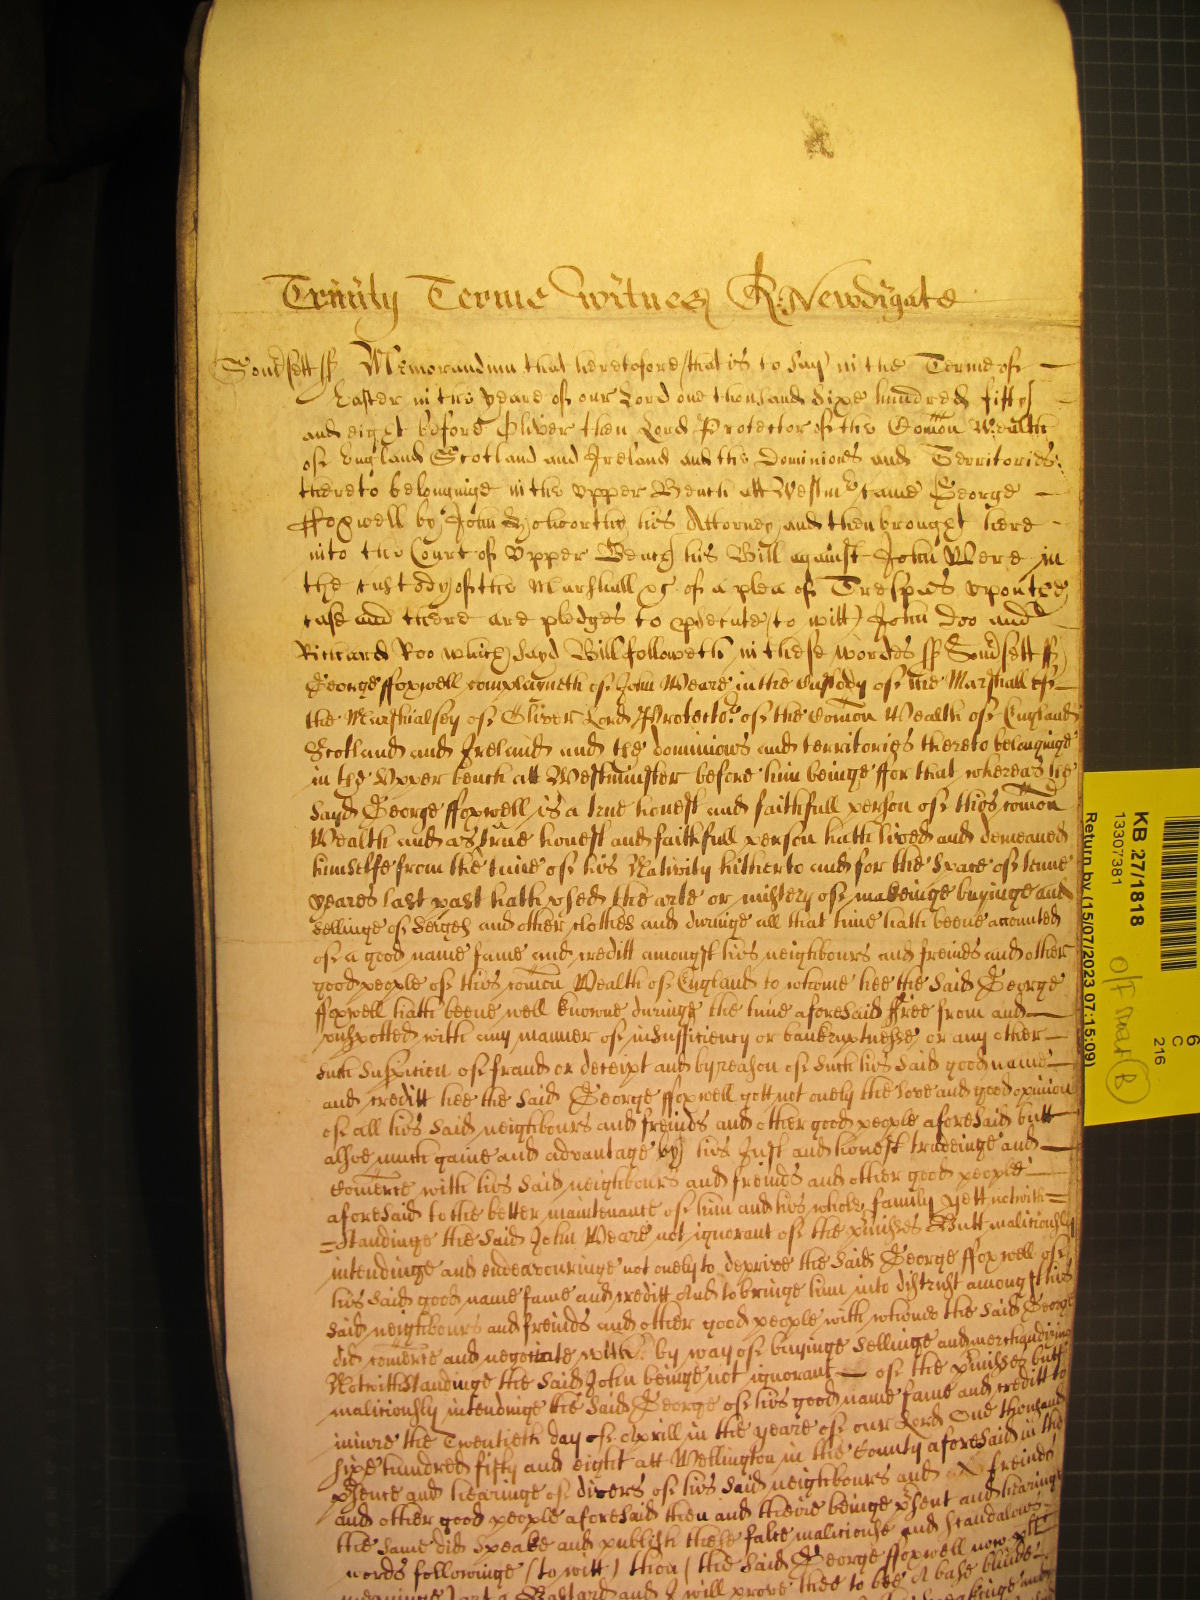 Trinity Terme witnes R: Newdigate
Som̃sett ss Memorandum that heretofore (that is to say) in the Terme of
Easter in the yeare of our Lord one thousand sixe hundred fifty
and eight before Oliver then Lord Protector of the Com̃on Wealth
of England Scotland and Ireland and the Dominions and Territories
thereto belonginge in the upper Bench att Westmr came George
ffoxwell by John his Attorney and then brought here
into the Court of Upper Bench his Bill against John Were in
the custody of the Marshall &c of a plea of Trespas upon the
case and there are pledges to psecute (to witt) John Doo and
Richard Roo which sayd Bill followeth in these wordes ss Som̃sett ss
George ffoxwell complayneth of John Weare in the custody of the Marshall of
the Marshalsey of Oliver Lord Protector of the Com̃on Wealth of England
Scotland and Ireland and the dominions and territories thereto belonginge
in the Upper bench att Westminster before him beinge ffor that whereas the
sayd George ffoxwell is a true honest and faithfull person of this com̃on
Wealth and as true honest and faithfull person hath lived and demeaned
himselfe from the time of his Nativity hitherto and for the space of tenne
yeares last past hath vsed the arte or mistery of makeinge buyinge and
sellinge of Serges and other clothes and duringe all that time hath beene accounted
of a good name fame and creditt amongst his neighbours and freinds and other
good people of this com̃on Wealth of England to whome hee the said George
ffoxwell hath beene well knowne duringe the time aforesaid ffree from and
vnspotted with any manner of insufficiency or bankruptnesse or any other
such suspicion of fraud or deceipt and by reason of such his said good name
and creditt hee the said George ffoxwell gott not onely the love and good opinion
of all his said neighbours and freinds and other good people aforesaid butt
alsoe much gaine and advantage by his Just and honest tradeinge and
Com̃erce with his said neighbours and freinds and other good people
aforesaid to the better maintenance of him and his whole family yett notwith=
=standinge the said John Weare not ignorant of the p̃misses Butt malitiously
intendinge and endeavouringe not onely to deprive the said George ffoxwell of
his said good name fame and creditt And to bringe him into distrust amongst his
said neighbours and freinds and other good people with whome the said George
did com̃erce and negotiate with by way of buyinge sellinge and merchandizing
Notwithstandinge the said John beinge not ignorant of the p̃misses butt
malitiously intendinge the said George of his good name fame and creditt to
iniure the Twentieth day of Aprill in the yeare of our Lord One thousand
sixe hundred fifty and eight att Wellington in the County aforesaid in the
p̃sence and hearinge of divers of his said neighbours and freinds
and other good people aforesaid then and there beinge p̃sent and hearinge
the same did speake and publish these false malitiouse and scandalous
words followinge (to witt) thou (the said George ffoxwell now plt
meaninge) art a Bastard and I will prove thee to bee A base
KB 27/1818
13307381
Return by (15/07/2023 07:15:09)
6
C
216